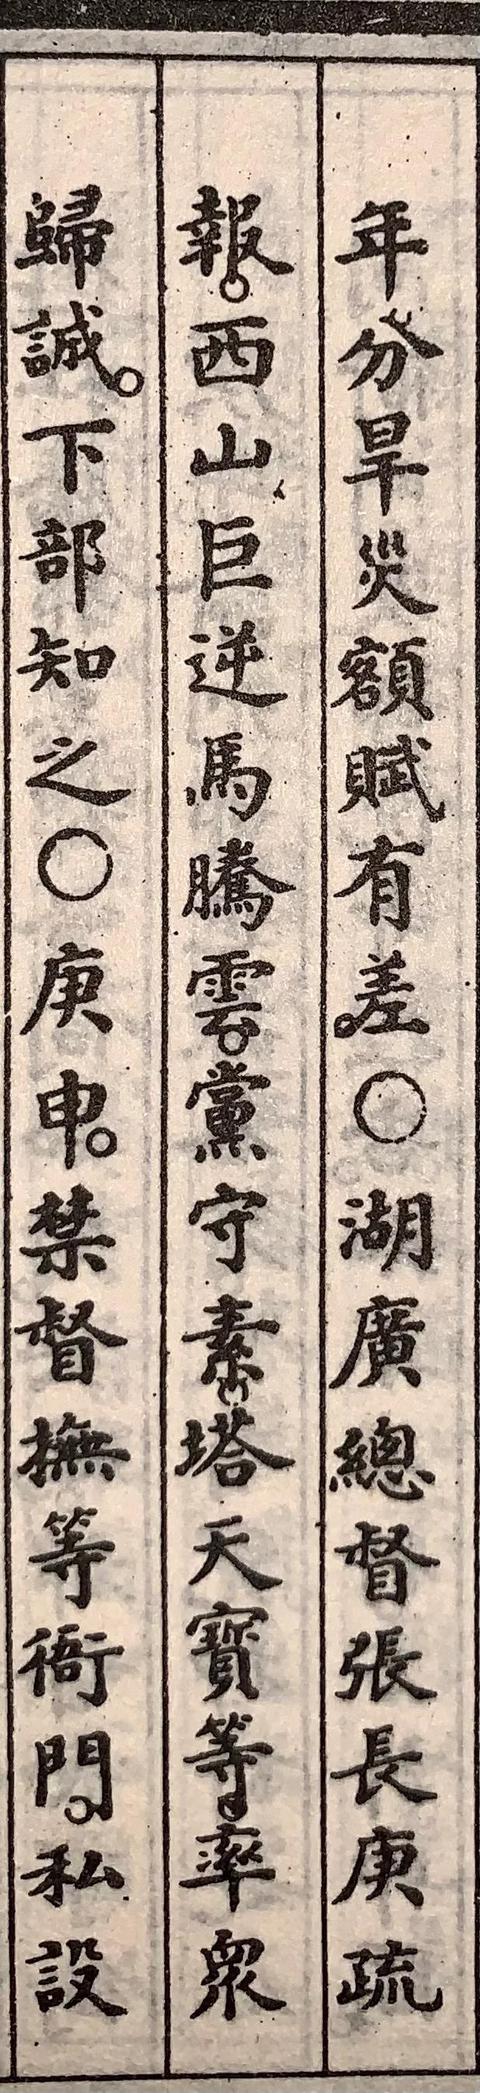 年分旱災額賦有差。○湖廣總督張長庚疏
報。西山巨逆馬騰雲。黨守素。塔天寶等。率衆
歸誠。下部知之○庚申。禁督撫等衙門。私設